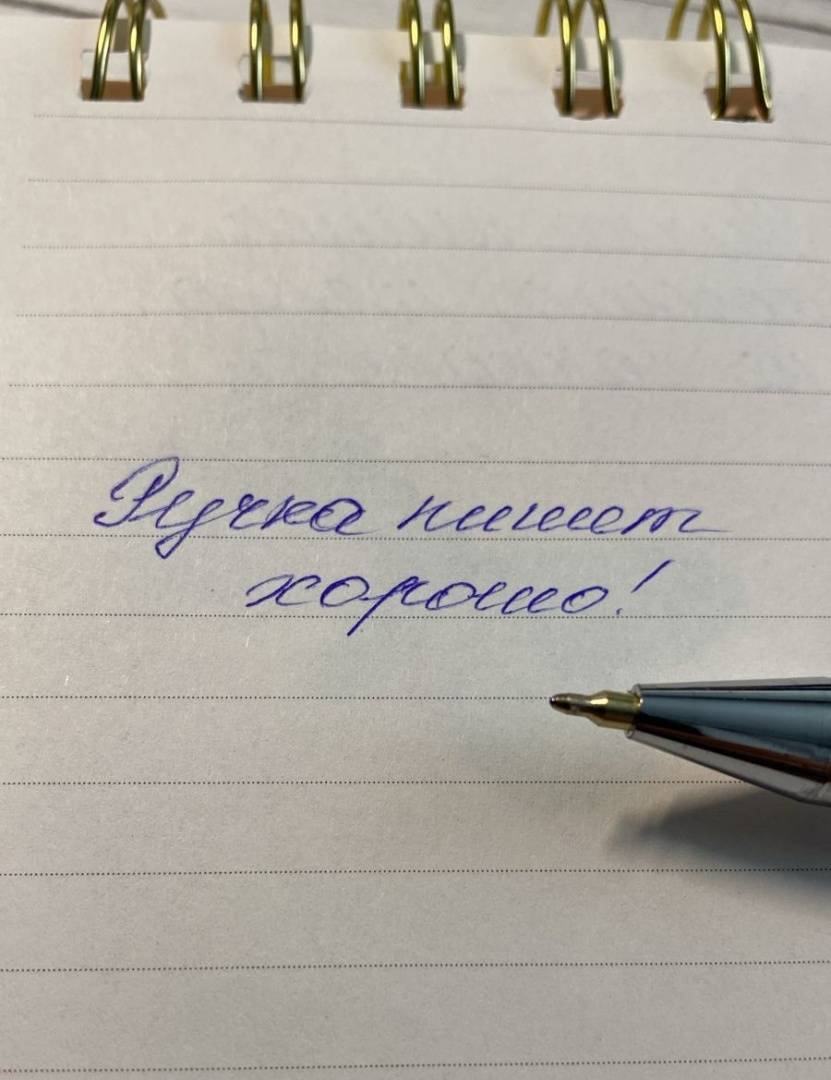 Ручка пишет
хорошо!